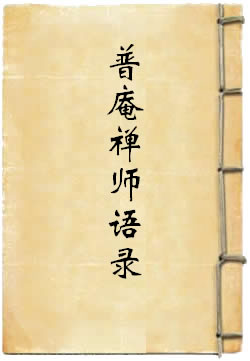 普庵禅师语录